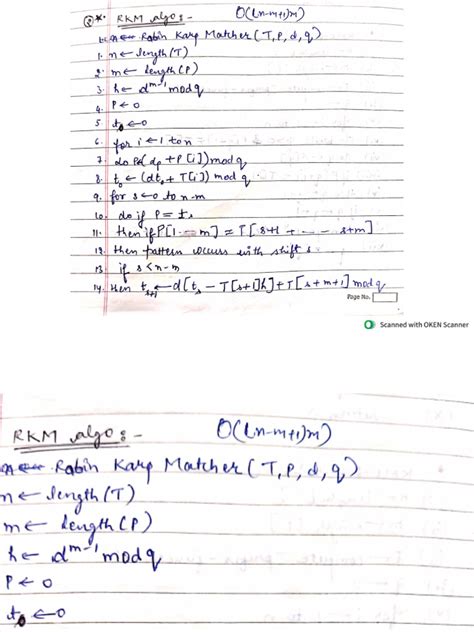 Q* RKM algo:- O((n-m+1)m)
Rabin Karp Matcher (T, P, d, q)
1. n ← length (T)
2. m ← length (P)
3. h ← d^m-1 mod q
4. P ← 0
5 t0 ← 0
6. for i ← 1 to n
7. do P ← (dp + P[i]) mod q
8. t0 ← (dt0 + T[i]) mod q
9. for s ← 0 to n-m
10. do if P = ts
11. then if P[1 --- m] = T[s+1 + --- s+m]
12. then pattern occurs with shift s
13 if s < n-m
14. then ts+1 ← d[ts - T[s+1]h] + T[s+m+1] mod q
Page No.
Scanned with OKEN Scanner
RKM algo:- O((n-m+1)m)
Rabin Karp Matcher (T, P, d, q)
n ← length (T)
m ← length (P)
h ← d^m-1 mod q
P ← 0
t0 ← 0